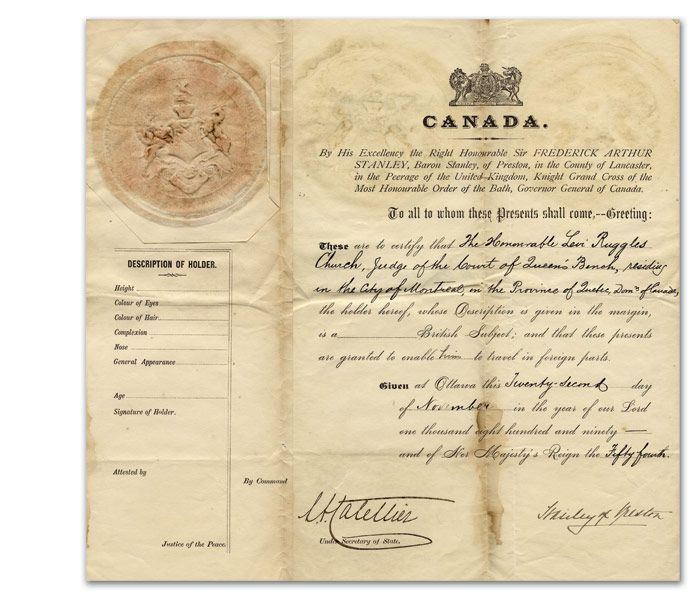 CANADA.
By His Excellency the Right Honourable Sir FREDERICK ARTHUR
STANLEY, Baron Stanley, of Preston, in the County of Lancaster,
in the Peerage of the United Kingdom, Knight Grand Cross of the
Most Honourable Order of the Bath, Governor General of Canada.
To all to whom these Presents shall come,--Greeting:
These are to certify that The Honourable Levi Ruggles
Church, Judge of the Court of Queen's Bench, residing
in the City of Montreal, in the Province of Quebec, Domn of Canada,
the holder hereof, whose Description is given in the margin,
is a British Subject; and that these presents
are granted to enable him to travel in foreign parts.
Given at Ottawa this Twenty-second day
of November in the year of our Lord
one thousand eight hundred and ninety —
and of Her Majesty's Reign the Fifty fourth.
DESCRIPTION OF HOLDER.
Height
Colour of Eyes
Colour of Hair
Complexion
Nose
General Appearance
Age
Signature of Holder.
Attested by
Justice of the Peace.
By Command
Under Secretary of State.
Stanley of Preston